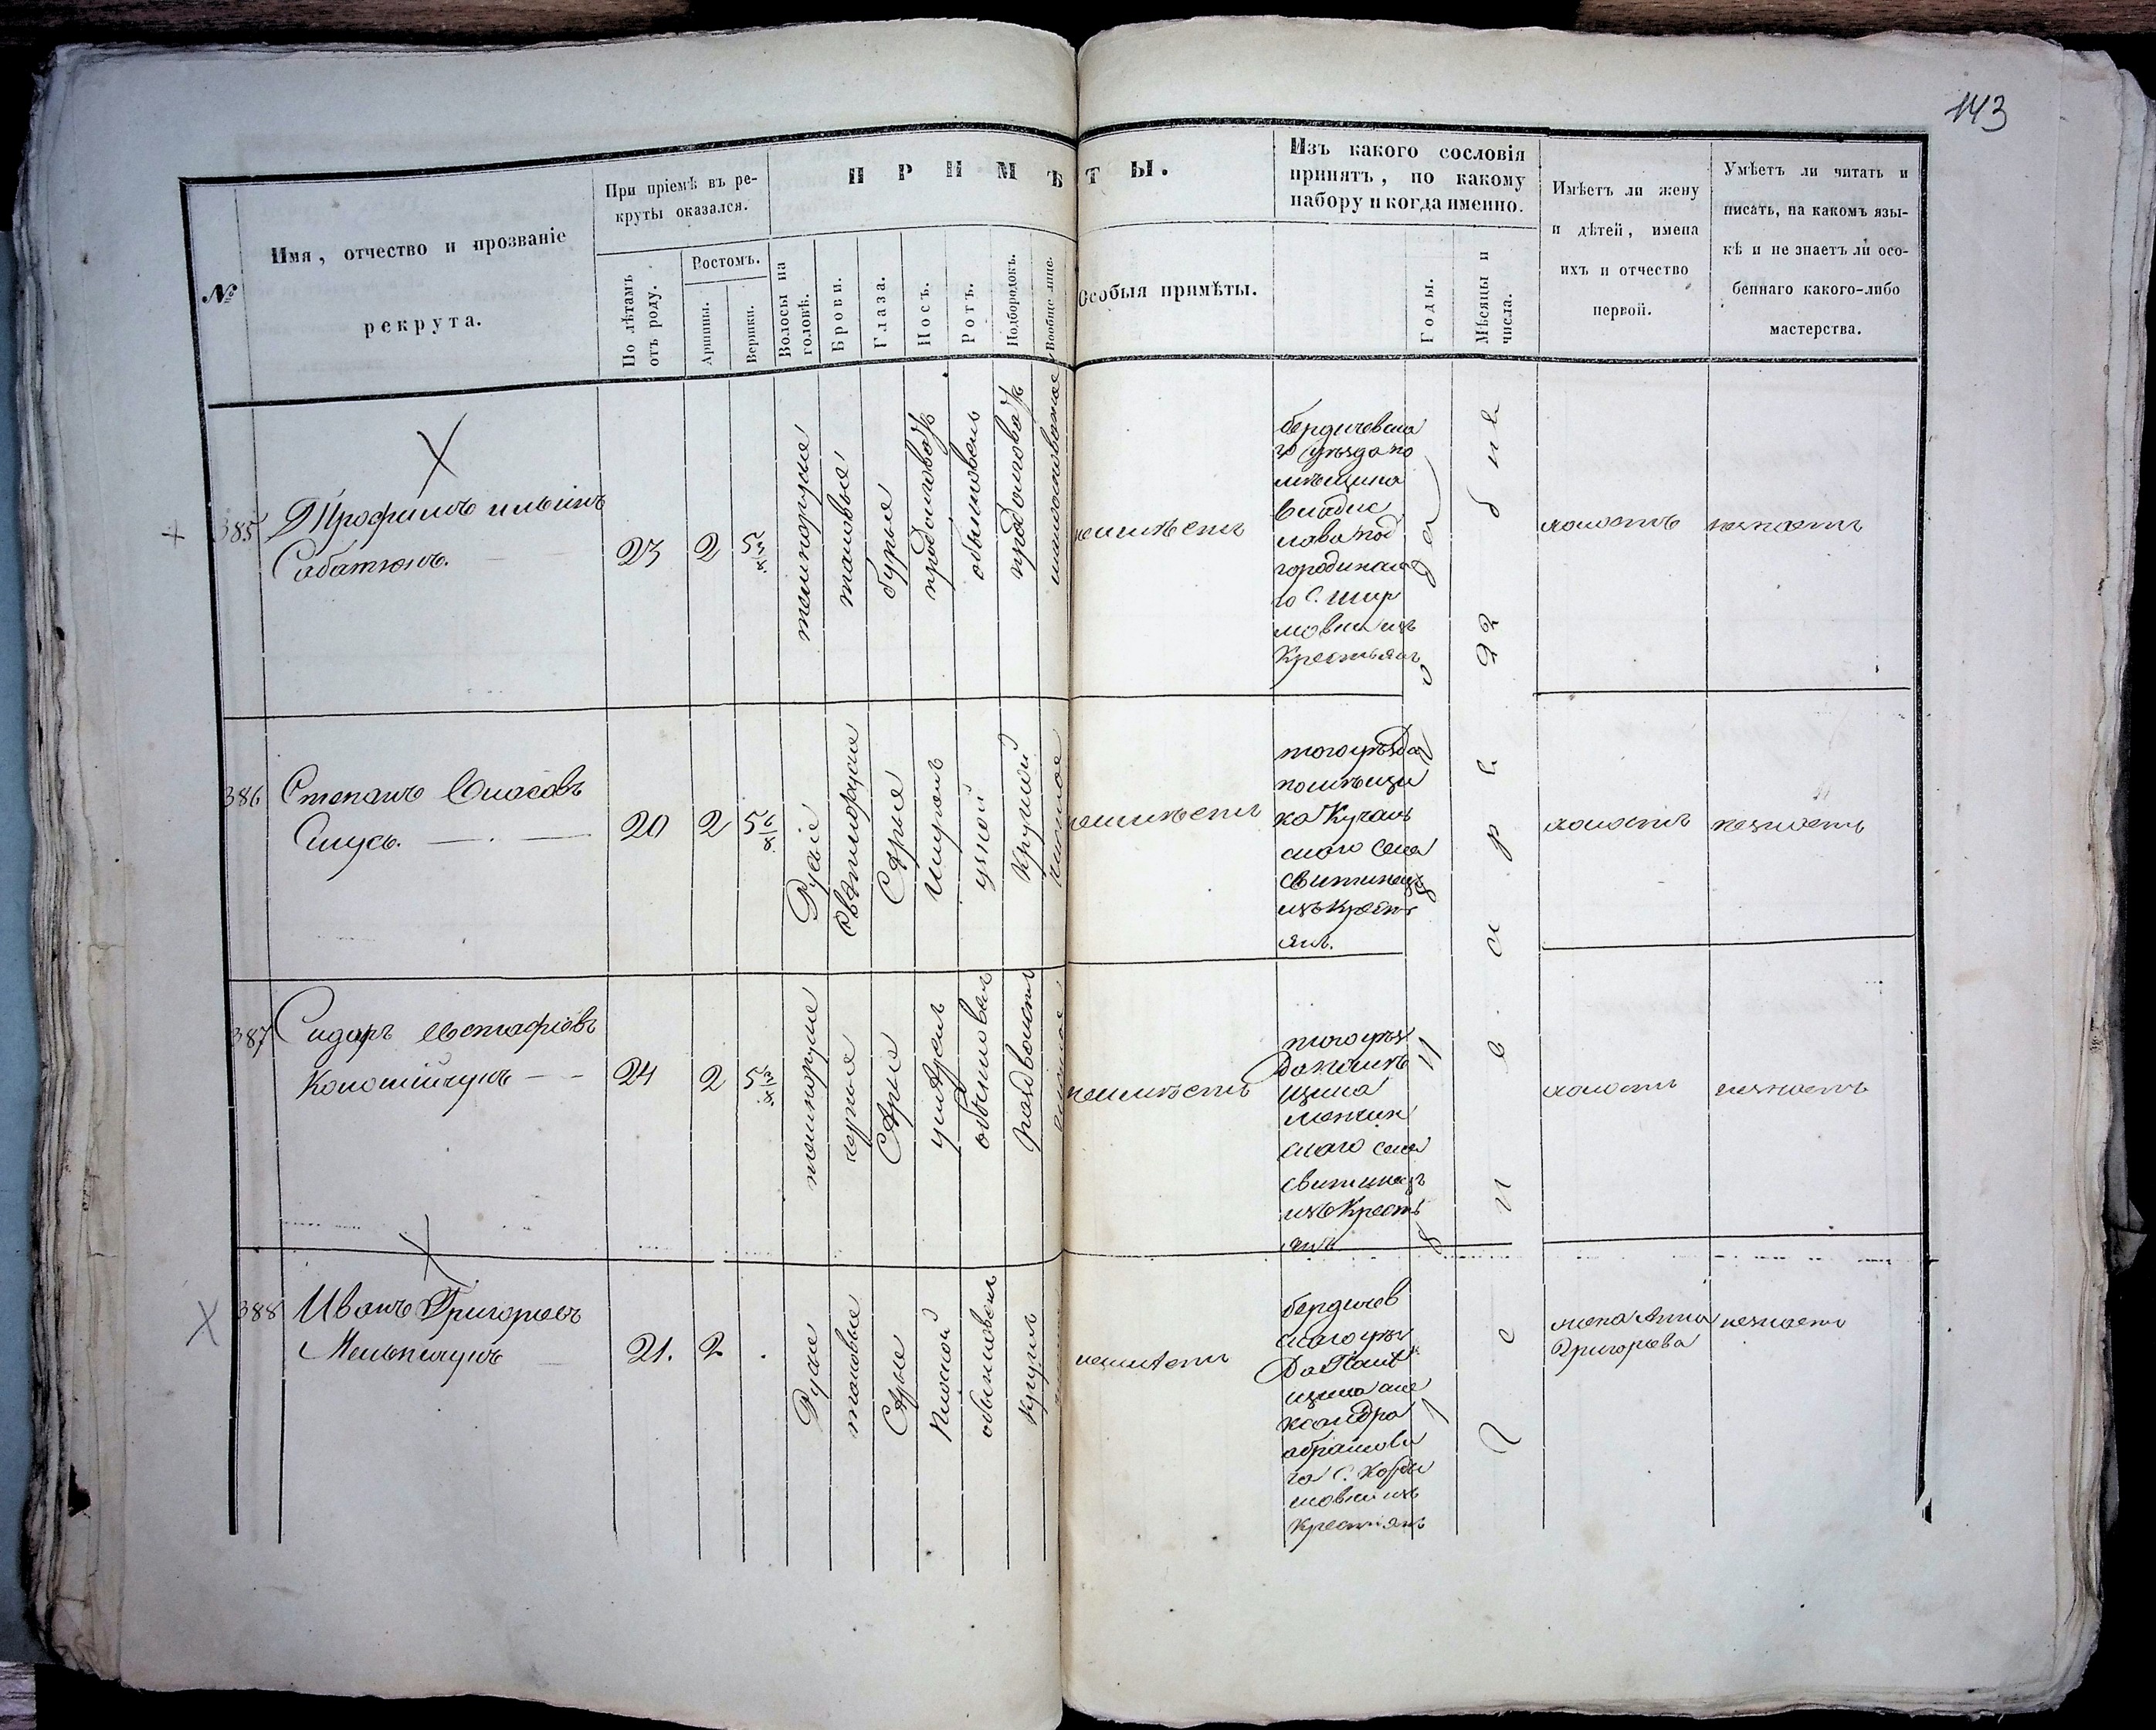 143
№
Имя, отчество и прозваніе
рекрута.
При пріемѣ въ ре-
круты оказался.
По лѣтамъ
отъ роду.
Ростомъ.
Аршины.
Вершки.
ПРИМѢТЫ.
Волосы на
головѣ.
Брови.
Глаза.
Носъ.
Ротъ.
Подбородокъ.
Вообще лице.
Особыя примѣты.
Изъ какого сословія
принятъ, по какому
набору и когда именно.
Годы.
Мѣсяцы и
числа.
Имѣетъ ли жену
и дѣтей, имена
ихъ и отчество
первой.
Умѣетъ ли читать и
писать, на какомъ язы-
кѣ и не знаетъ ли осо-
беннаго какого-либо
мастерства.
385
Трофимъ
Сабатюкъ.
23
2
5
темнорусые
таковые
бурые
продолговатъ
обыкновенъ
продолговатъ
неимѣетъ
бердичевска
го уѣзда по
мѣщика
Владис
лава Под
городинска
го С.
изъ
Крестьянъ
холостъ
незнаетъ
386
Степанъ Власовъ
20
2
5
Русые
светлорусые
Серые
широкъ
малой
круглой
чистое
неимѣетъ
того уѣзда
помѣщи
ка
скаго села
изъ Крестъ
янъ.
холостъ
незнаетъ
387
Сидоръ Евстафіевъ
Коломійчукъ
24
2
5
темнорусые
черные
Серые
умѣренъ
обыкновенъ
раздвоистъ
неимѣетъ
того уѣз
да помѣ
щика
скаго села
изъ Кресть
янъ
холостъ
незнаетъ
388
Иванъ Григорьевъ
Мельничукъ
21.
2
Русые
таковые
Серые
Плоской
обыкновенъ
круглъ
неимѣетъ
бердичев
скаго уѣз
да Помѣ
щика але
ксандра
абрамови
ча С.
изъ
Крестьянъ
жена Анна
Григорьева
незнаетъ
декабря 22